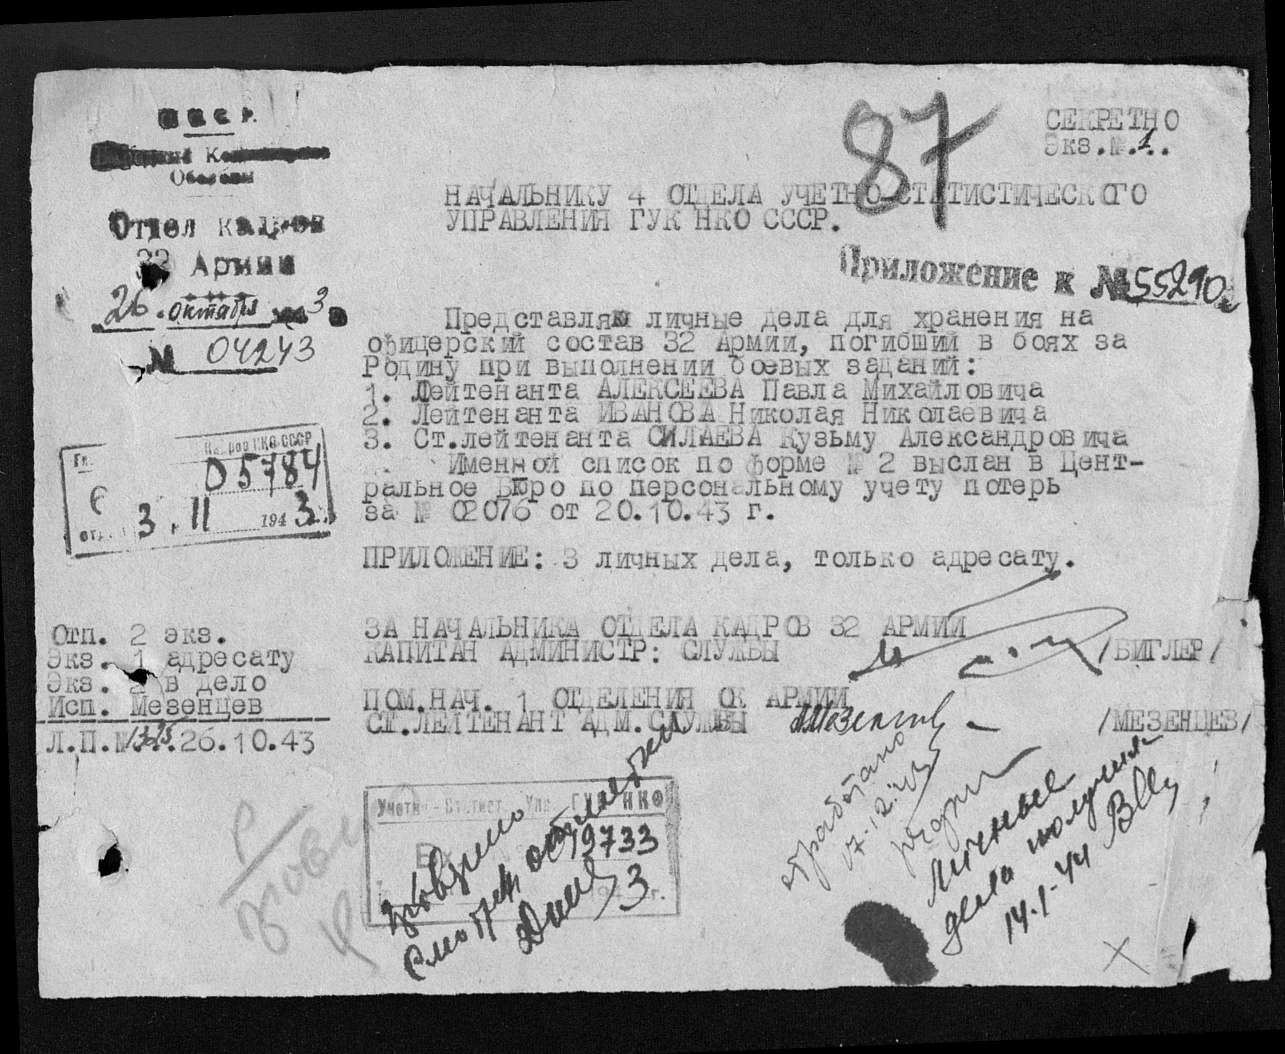 С С С Р.
Народный Комиссариат
Обороны
Отдел кадров
32 Армии
26 октября 1943 г.
№ 04243
87
СЕКРЕТНО
Экз.№.1..
НАЧАЛЬНИКУ 4 ОТДЕЛА УЧЕТНО-СТАТИСТИЧЕСКОГО
УПРАВЛЕНИЯ ГУК НКО СССР.
Приложение к №55290с
Представляю личные дела для хранения на
офицерский состав 32 Армии, погибший в боях за
Родину при выполнении боевых заданий:
1. Лейтенанта АЛЕКСЕЕВА Павла Михайловича
2. Лейтенанта ИВАНОВА Николая Николаевича
3. Ст.лейтенанта СИЛАЕВА Кузьму Александровича
Именной список по форме № 2 выслан в Цент-
ральное Бюро по персональному учету потерь
за № 02076 от 20.10.43 г.
ПРИЛОЖЕНИЕ: 3 личных дела, только адресату.
кадров НКО СССР
05784
3. 11 1943
Отп. 2 экз.
Экз. 1 адресату
Экз. 2 в дело
Исп. Мезенцев
Л.П.№1375.26.10.43
ЗА НАЧАЛЬНИКА ОТДЕЛА КАДРОВ 32 АРМИИ
КАПИТАН АДМИНИСТР: СЛУЖБЫ /БИГЛЕР/
ПОМ.НАЧ. 1 ОТДЕЛЕНИЯ ОК АРМИИ
СТ.ЛЕЙТЕНАНТ АДМ.СЛУЖБЫ /МЕЗЕНЦЕВ/
Учетно-Статист. Упр. ГУК НКО
19733
3 г.
отработано
17.12.43
личные
дела получил
14.1-44